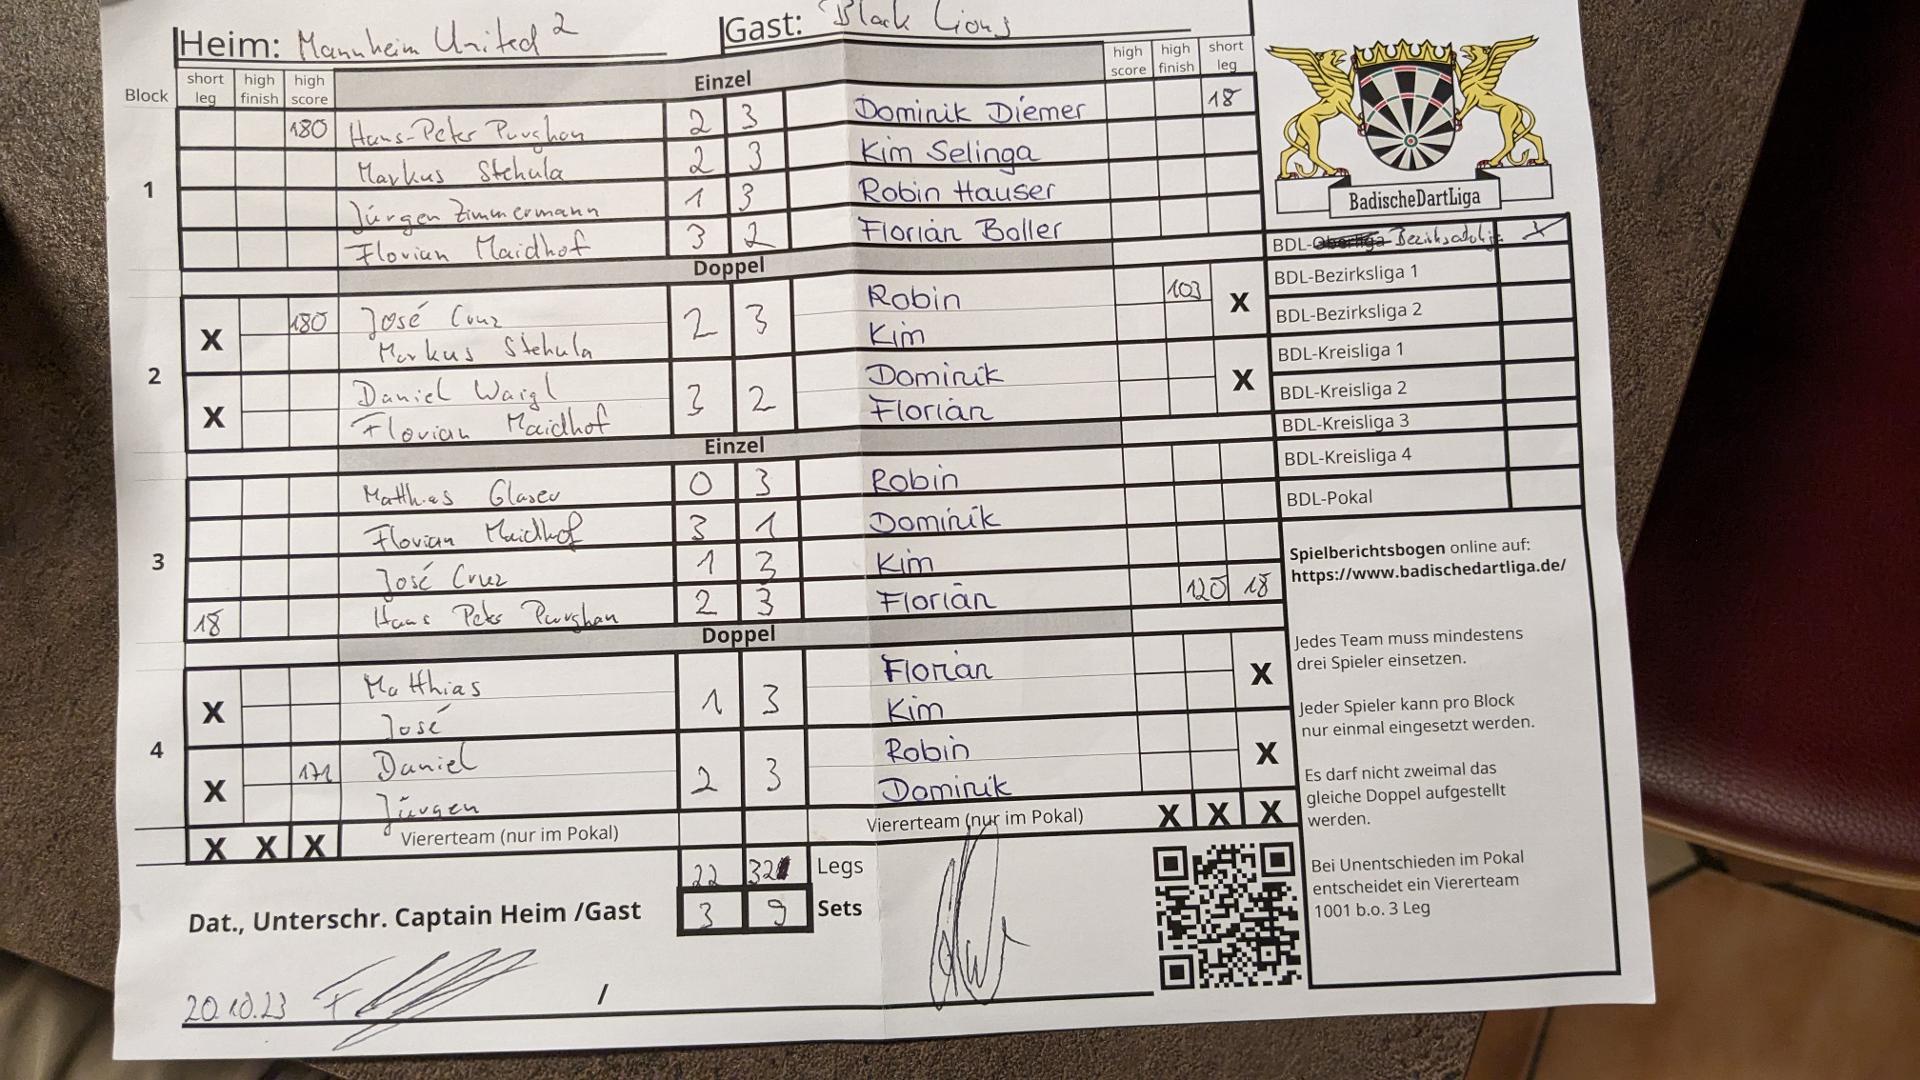 Heim: Mannheim United 2 Gast: Black Lions
Block short leg high finish high score Einzel high score high finish short leg
1
180 Hans-Peter Purghan 2 3 Dominik Diemer 18
Markus Stehula 2 3 Kim Selinga
Jürgen Zimmermann 1 3 Robin Hauser
Florian Maidhof 3 2 Florian Boller
Doppel
2
X 180 José Cruz 2 3 Robin 103 X
Markus Stehula Kim
X Daniel Waigl 3 2 Dominik X
Florian Maidhof Florian
Einzel
3
Matthias Glaser 0 3 Robin
Florian Maidhof 3 1 Dominik
José Cruz 1 3 Kim
18 Hans Peter Purghan 2 3 Florian 120 18
Doppel
4
X Matthias 1 3 Florian X
José Kim
X 171 Daniel 2 3 Robin X
Jürgen Dominik
X X X Viererteam (nur im Pokal) Viererteam (nur im Pokal) X X X
22 32 Legs
Dat., Unterschr. Captain Heim /Gast 3 9 Sets
20.10.23 /
BadischeDartLiga
BDL-Oberliga X
BDL-Bezirksliga 1
BDL-Bezirksliga 2
BDL-Kreisliga 1
BDL-Kreisliga 2
BDL-Kreisliga 3
BDL-Kreisliga 4
BDL-Pokal
Spielberichtsbogen online auf:
https://www.badischedartliga.de/
Jedes Team muss mindestens
drei Spieler einsetzen.
Jeder Spieler kann pro Block
nur einmal eingesetzt werden.
Es darf nicht zweimal das
gleiche Doppel aufgestellt
werden.
Bei Unentschieden im Pokal
entscheidet ein Viererteam
1001 b.o. 3 Leg